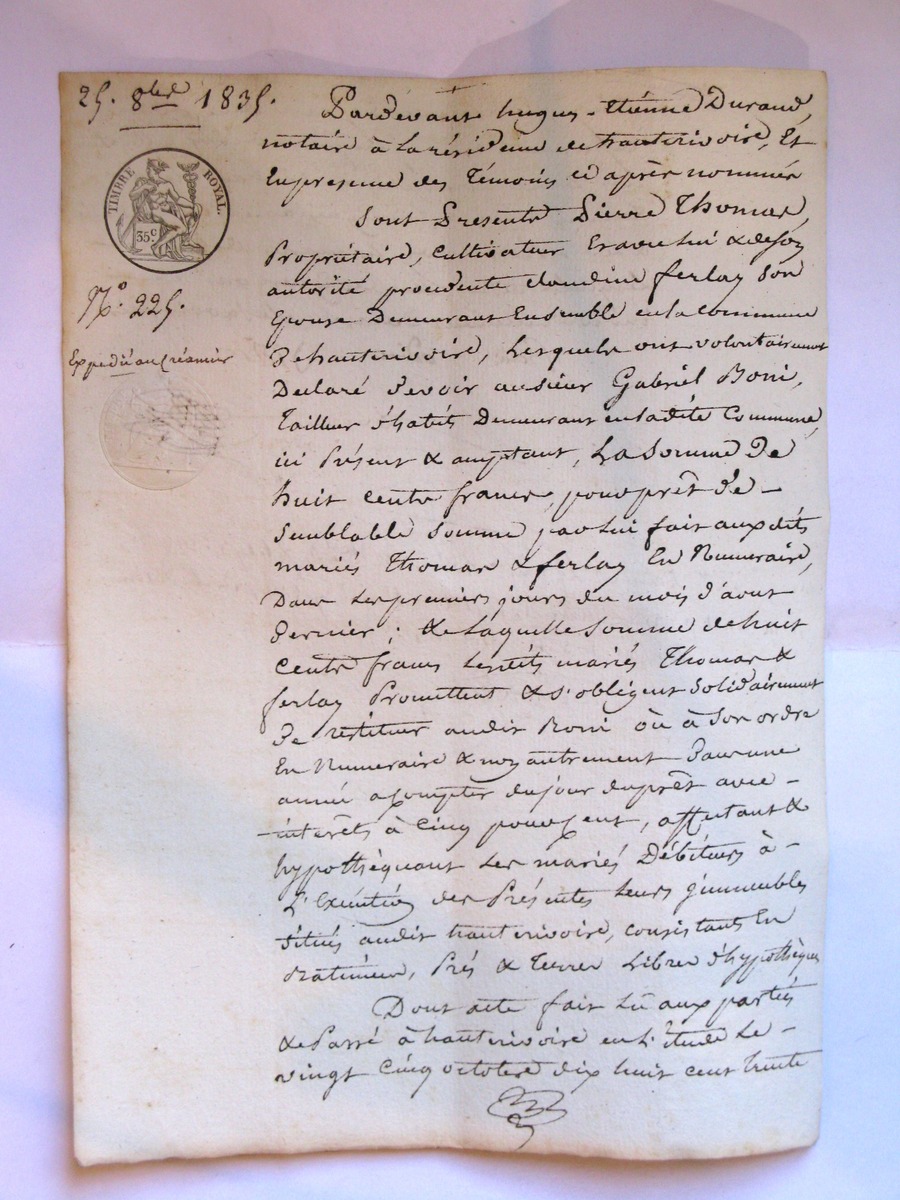 25. 8bre 1835.
TIMBRE ROYAL.
35c
No. 225.
Expedié au Créancier
Pardevant hugues-Etienne Durand,
notaire à La résidence de hauterivoire, Et
En presence des Témoins ci après nommés
Sont Présents Pierre Thomas,
Propriétaire, Cultivateur Et avec Lui & de son
autorité procedente claudine ferlay son
Epouse Demeurant Ensemble en la commune
De hauterivoire, Lesquels ont volontairement
Declaré devoir au sieur Gabriel Boni,
Tailleur d'habits Demeurant en ladite Commune,
ici Présent & acceptant, La Somme De
huit cents francs, pour prêt de
Semblable somme par Lui fait aux dits
mariés Thomas & ferlay En Numeraire,
Dans Les premiers jours du mois d'aout
dernier; & de Laquelle somme de huit
cents francs Lesdits mariés Thomas &
ferlay Promettent & s'obligent solidairement
De restituer audit Boni où à son ordre
En Numeraire & non autrement Dans une
année a compter du jour du prêt avec
interêts à Cinq pour cent, affectant &
hypothèquant Les mariés Débiteurs à
L'Exécution des Présentes Leurs immeubles
situés audit hauterivoire, consistant En
Batiment, Prés & Terres Libres d'hypothèques
Dont acte fait Lu aux parties
& Passé à hauterivoire en L'étude Le
vingt Cinq octobre dix huit cent trente